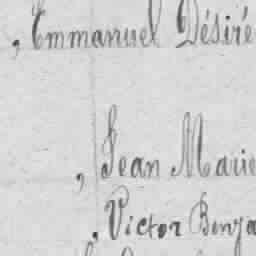 , Emmanuel Désiré
, Jean Marie
, Victor Benja